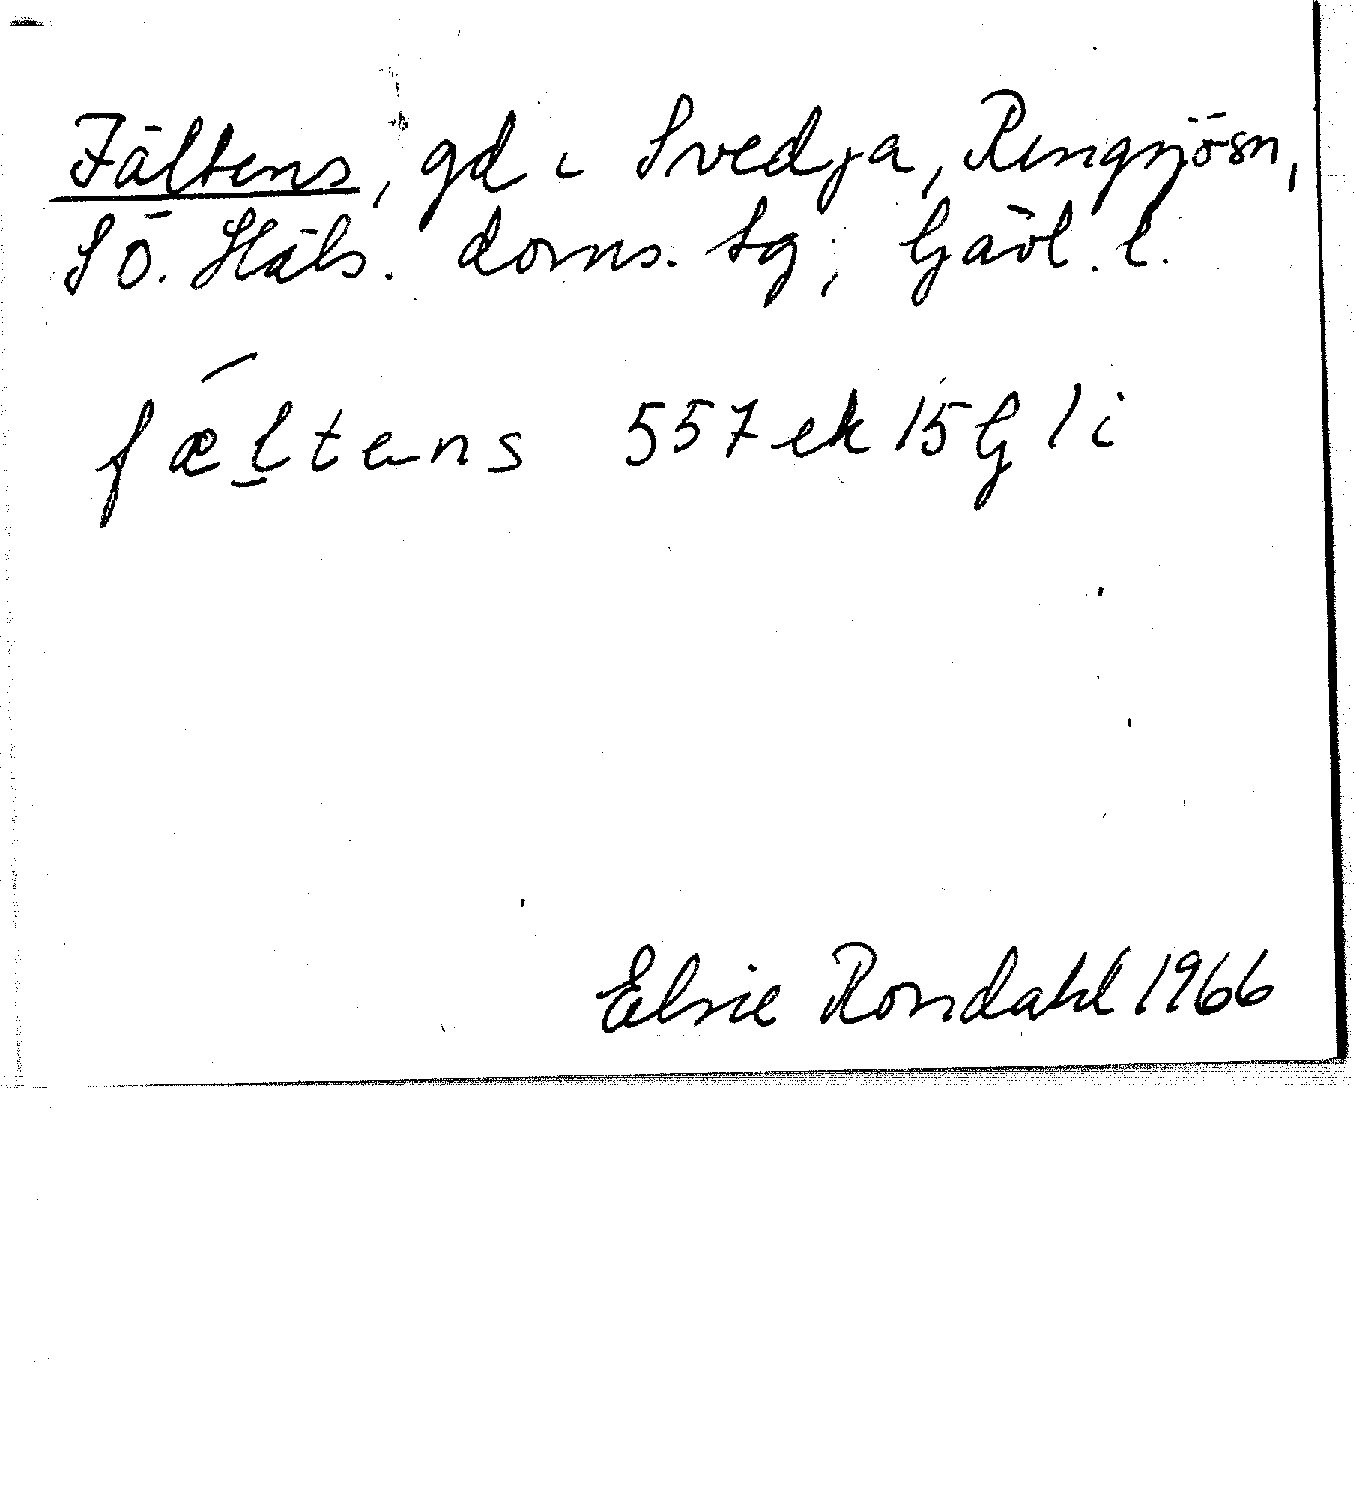 Fältens, gd i Svedja, Rengsjö sn,
SÖ. Häls. doms. tg, Gävl. l.
fæ̱ltens 557 ek 15 G 1 i
Elsie Rondahl 1966